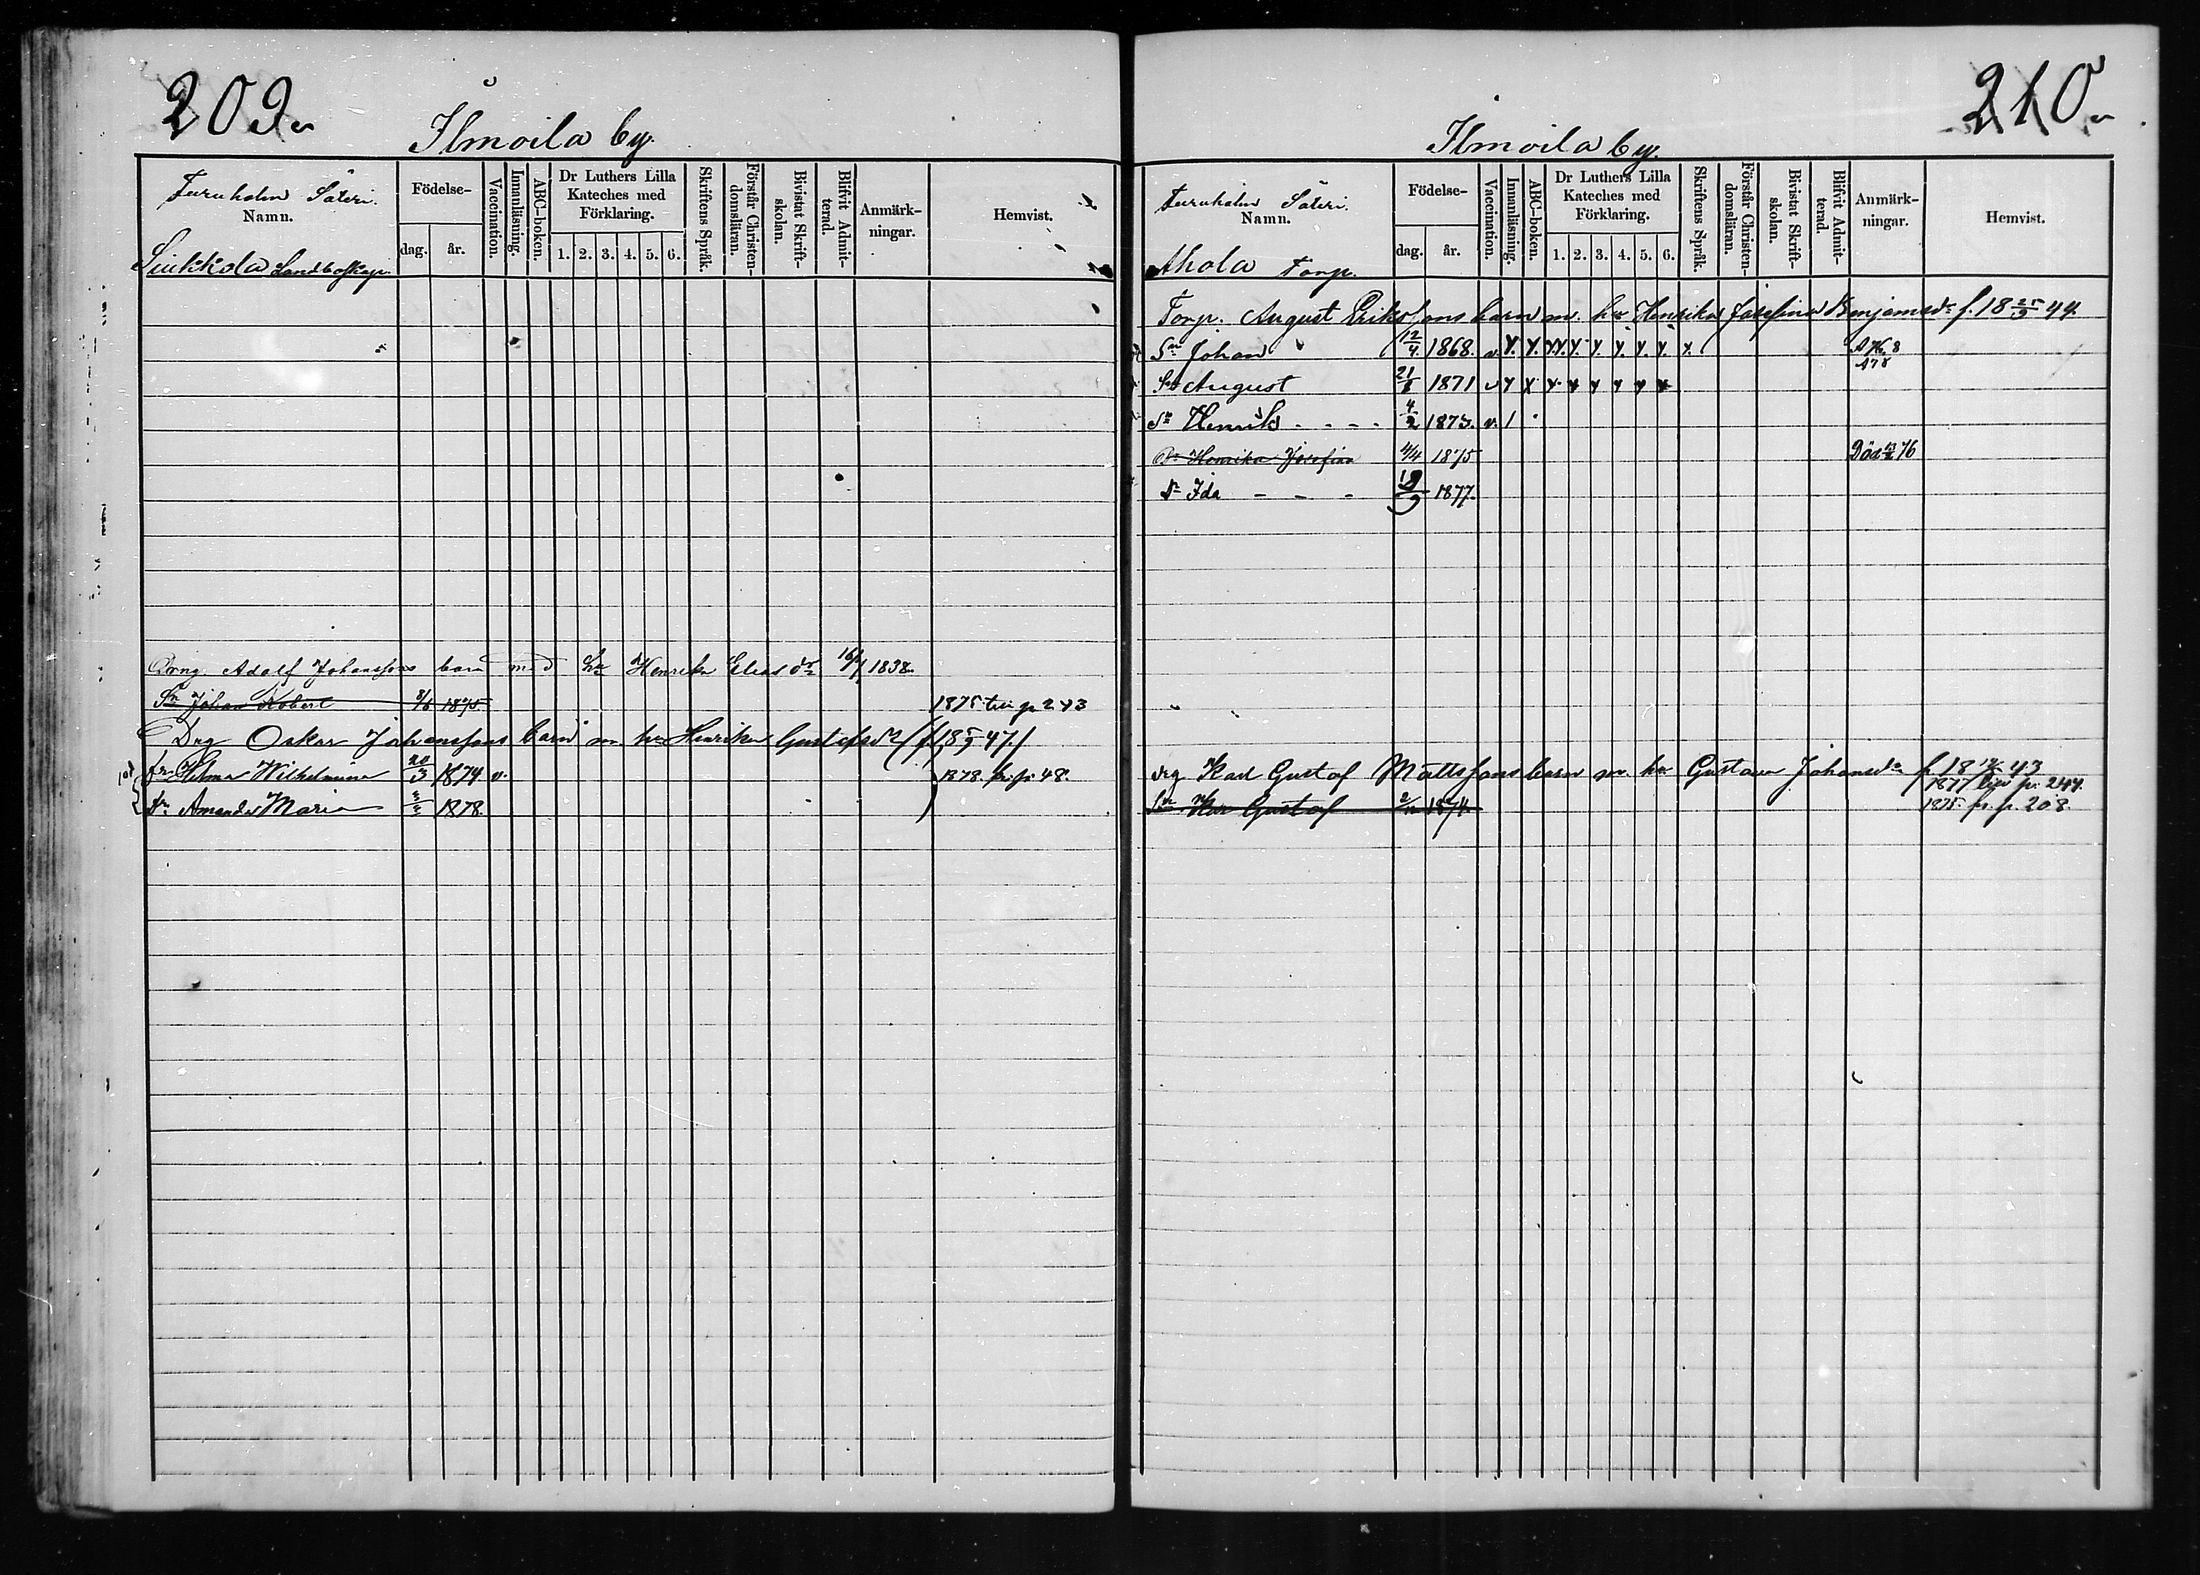 209
Ilmoila by.
Furuholm Säteri.
Namn.
Sinkkola Landbolägn
Födelse-
dag. år.
Vaccination.
Innanläsning.
ABC-boken.
Dr Luthers Lilla Kateches med Förklaring.
1. 2. 3. 4. 5. 6.
Skriftens Språk.
Förstår Christen-domsläran.
Bivistat Skrift-skolan.
Blifvit Admit-terad.
Anmärk-ningar.
Hemvist.
Drng. Adolf Johanssons barn med hu Henrika Eliasdr 16/1 1838.
Sn Johan Robert 3/8 1875 1875 till p 243
Drg Oskar Johanssons barn m. hu Henrika Gustafsdr (f. 18 5/9 47.)
dr Hilma Wilhelmina 20/3 1874 v. 1878 fr. p. 48.
dr Amanda Maria 1878.
210
Ilmoila by.
Furuholm Säteri.
Namn.
Ahola Torp.
Födelse-
dag. år.
Vaccination.
Innanläsning.
ABC-boken.
Dr Luthers Lilla Kateches med Förklaring.
1. 2. 3. 4. 5. 6.
Skriftens Språk.
Förstår Christen-domsläran.
Bivistat Skrift-skolan.
Blifvit Admit-terad.
Anmärk-ningar.
Hemvist.
Torp. August Erikssons barn m. hu Henrika Josefina Benjamsdr f. 18 25/3 44.
Sn Johan 12/4 1868. v. x x x x x x x x x
Sn August 21/8 1871 v x x x x x x x x
Sn Henrik - - - - 4/2 1873. v. 1
Dr Henrika Josefina 4/4 1875 Död 76
Dr Ida - - - 18/9 1877.
drg Karl Gustaf Mattssons barn m. hu Gustava Johansdr f. 18 43
1877 till p. 244.
Sn Kar Gustaf 1874. 1875 fr. p. 208.